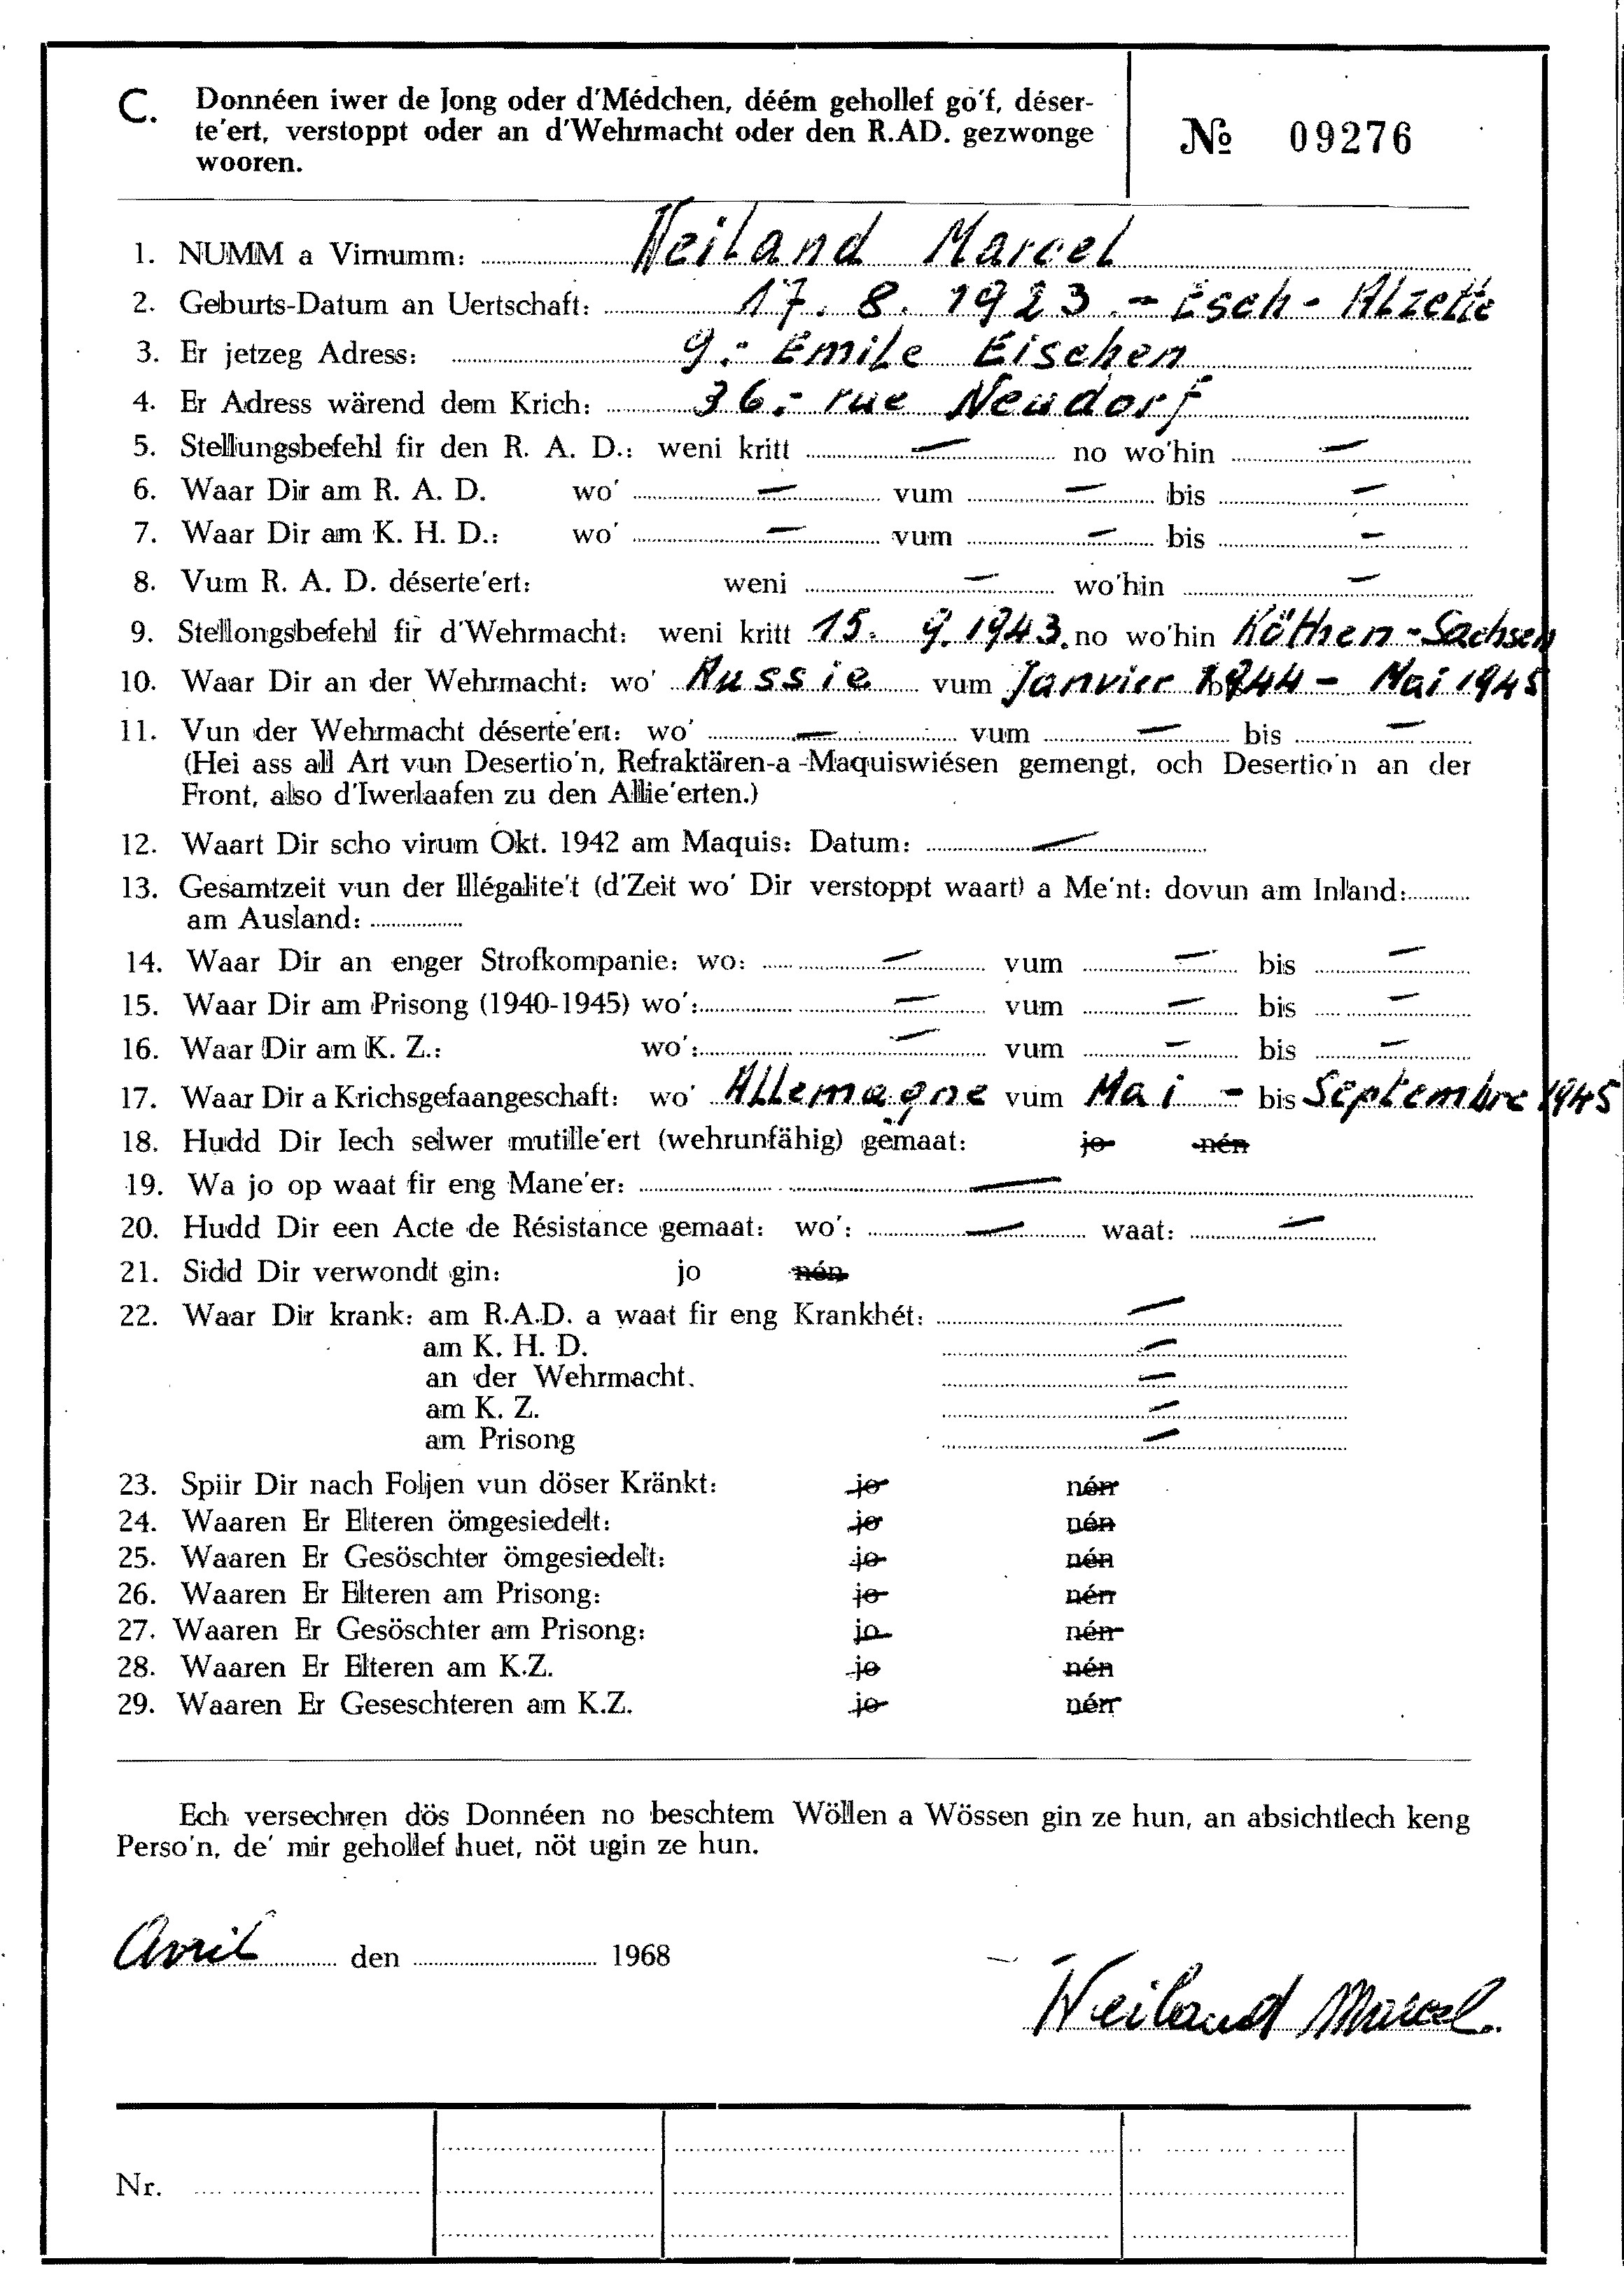 C. Donnéen iwer de Jong oder d'Médchen, déém gehollef go'f, déser-
te'ert, verstoppt oder an d'Wehrmacht oder den R.AD. gezwonge
wooren.
№ 09276
1. NUMM a Virnumm: Weiland Marcel
2. Geburts-Datum an Uertschaft: 17. 8. 1923 - Esch - Alzette
3. Er jetzeg Adress: 9.- Emile Eischen
4. Er Adress wärend dem Krich: 36.- rue Neudorf
5. Stellungsbefehl fir den R. A. D.: weni kritt — no wo'hin —
6. Waar Dir am R. A. D. wo' — vum — bis —
7. Waar Dir am K. H. D.: wo' — vum — bis —
8. Vum R. A. D. déserte'ert: weni — wo'hin —
9. Stellongsbefehl fir d'Wehrmacht: weni kritt 15. 9. 1943. no wo'hin Köthen-Sachsen
10. Waar Dir an der Wehrmacht: wo' Russie vum Janvier 1944 - Mai 1945
11. Vun der Wehrmacht déserte'ert: wo' — vum — bis —
(Hei ass all Art vun Desertio'n, Refraktären-a -Maquiswiésen gemengt, och Desertio'n an der
Front, also d'Iwerlaafen zu den Allie'erten.)
12. Waart Dir scho virum Okt. 1942 am Maquis: Datum: —
13. Gesamtzeit vun der Illégalite't (d'Zeit wo' Dir verstoppt waart) a Me'nt: dovun am Inland:
am Ausland:
14. Waar Dir an enger Strofkompanie: wo: — vum — bis —
15. Waar Dir am Prisong (1940-1945) wo': — vum — bis —
16. Waar Dir am K. Z.: wo': — vum — bis —
17. Waar Dir a Krichsgefaangeschaft: wo' Allemagne vum Mai - bis Septembre 1945
18. Hudd Dir Iech selwer mutille'ert (wehrunfähig) gemaat: jo nén
19. Wa jo op waat fir eng Mane'er: —
20. Hudd Dir een Acte de Résistance gemaat: wo': — waat: —
21. Sidd Dir verwondt gin: jo nén
22. Waar Dir krank: am R.A.D. a waat fir eng Krankhét: —
am K. H. D. —
an der Wehrmacht. —
am K. Z. —
am Prisong —
23. Spiir Dir nach Foljen vun döser Kränkt: jo nén
24. Waaren Er Elteren ömgesiedelt: jo nén
25. Waaren Er Gesöschter ömgesiedelt: jo nén
26. Waaren Er Elteren am Prisong: jo nén
27. Waaren Er Gesöschter am Prisong: jo nén
28. Waaren Er Elteren am K.Z. jo nén
29. Waaren Er Geseschteren am K.Z. jo nén
Ech versechren dös Donnéen no beschtem Wöllen a Wössen gin ze hun, an absichtlech keng
Perso'n, de' mir gehollef huet, nöt ugin ze hun.
Avril den 1968
Weiland Marcel
Nr.